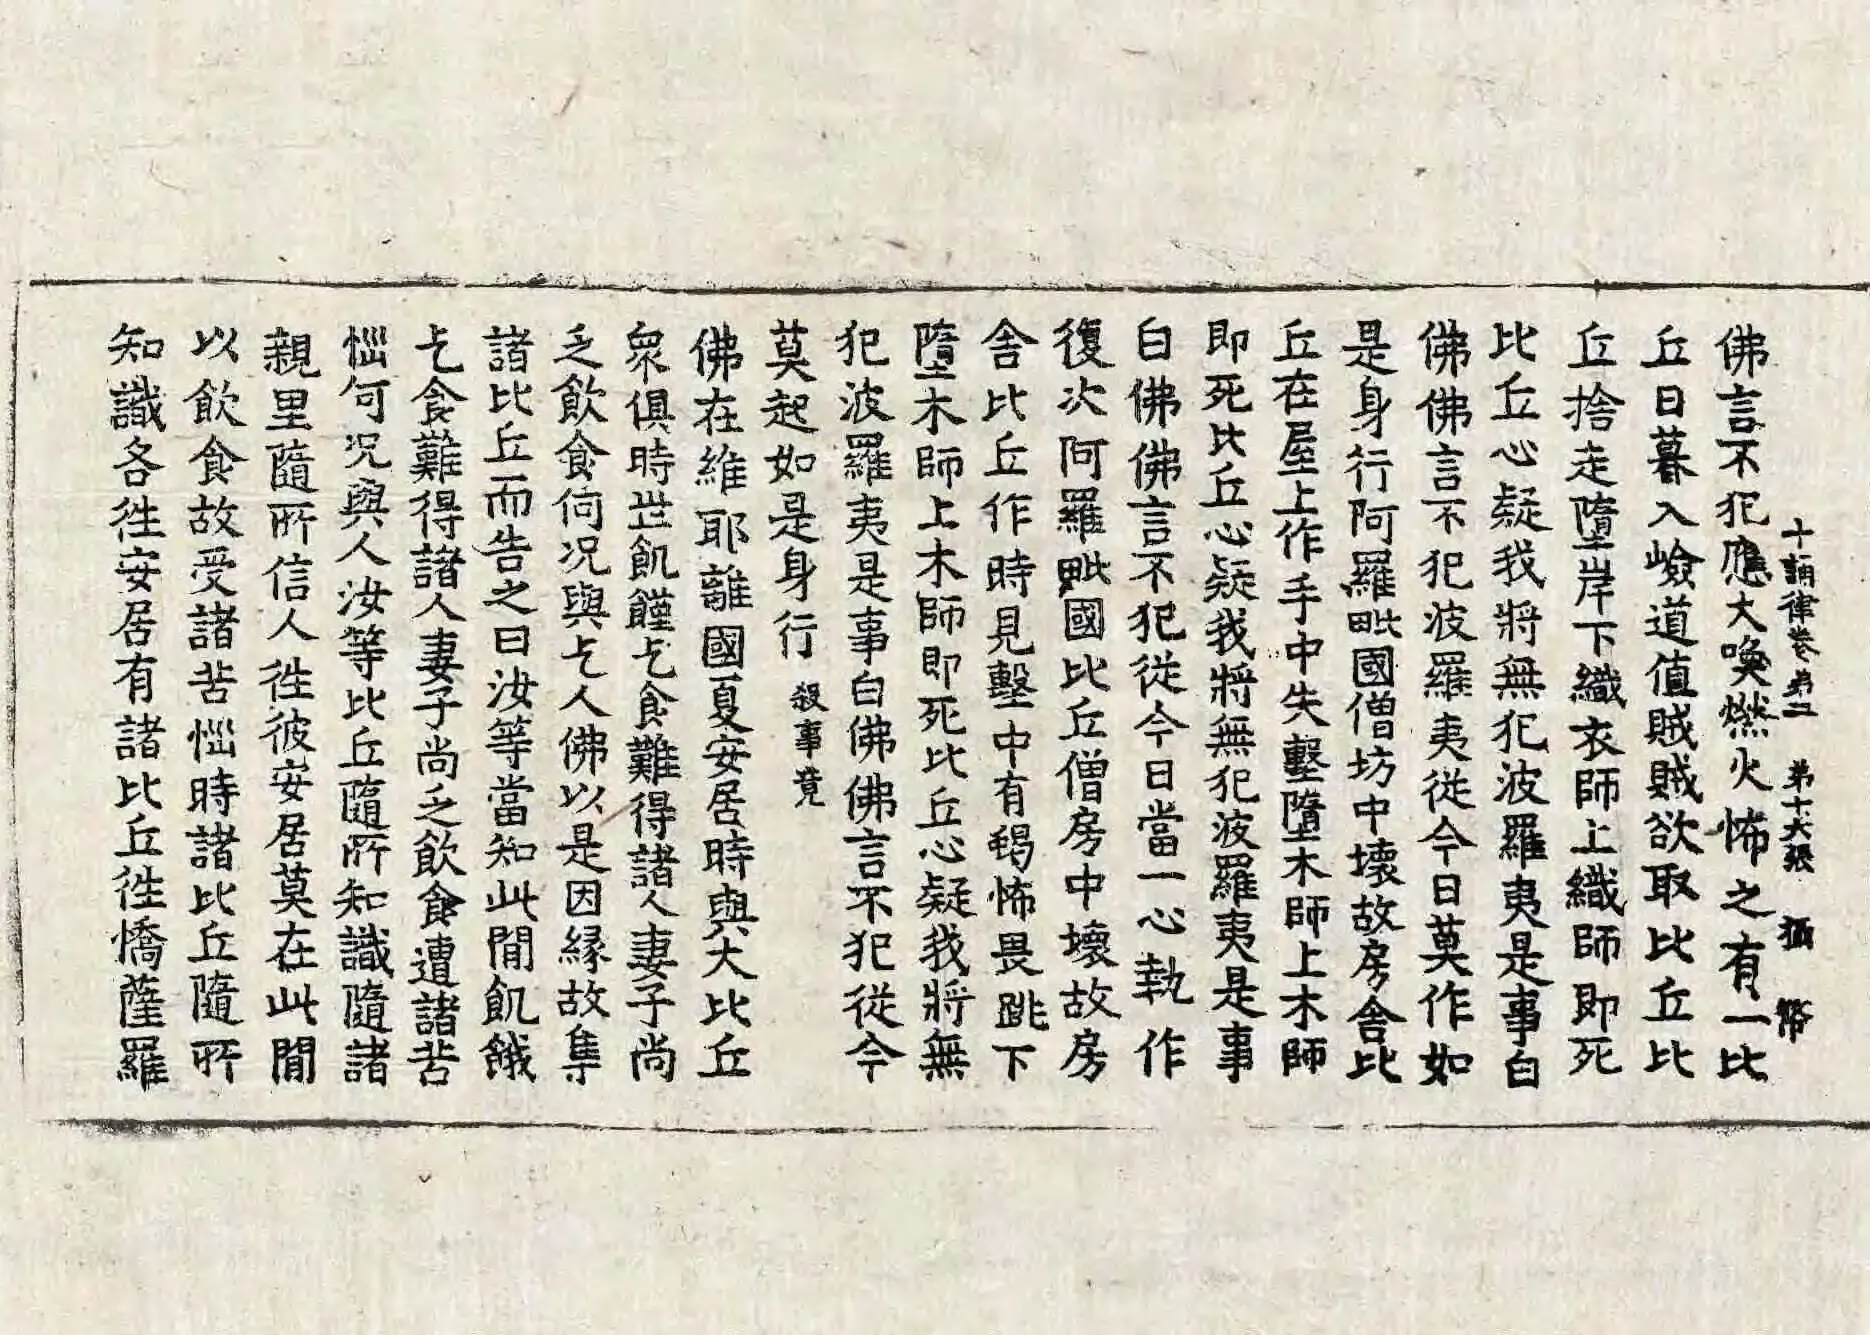 十誦律卷第二 第十六張 猶 幣
佛言不犯應大喚燃火怖之有一比
丘日暮入嶮道值賊賊欲取比丘比
丘捨走墮岸下織衣師上織師即死
比丘心疑我將無犯波羅夷是事白
佛佛言不犯波羅夷從今日莫作如
是身行阿羅毗國僧坊中壞故房舍比
丘在屋上作手中失墼墮木師上木師
即死比丘心疑我將無犯波羅夷是事
白佛佛言不犯從今日當一心執作
復次阿羅毗國比丘僧房中壞故房
舍比丘作時見墼中有蝎怖畏跳下
墮木師上木師即死比丘心疑我將無
犯波羅夷是事白佛佛言不犯從今
莫起如是身行 殺事竟
佛在維耶離國夏安居時與大比丘
衆俱時世飢饉乞食難得諸人妻子尚
乏飲食何况與乞人佛以是因緣故集
諸比丘而告之曰汝等當知此間飢餓
乞食難得諸人妻子尚乏飲食遭諸苦
惱何况與人汝等比丘隨所知識隨諸
親里隨所信人徃彼安居莫在此間
以飲食故受諸苦惱時諸比丘隨所
知識各徃安居有諸比丘徃憍薩羅